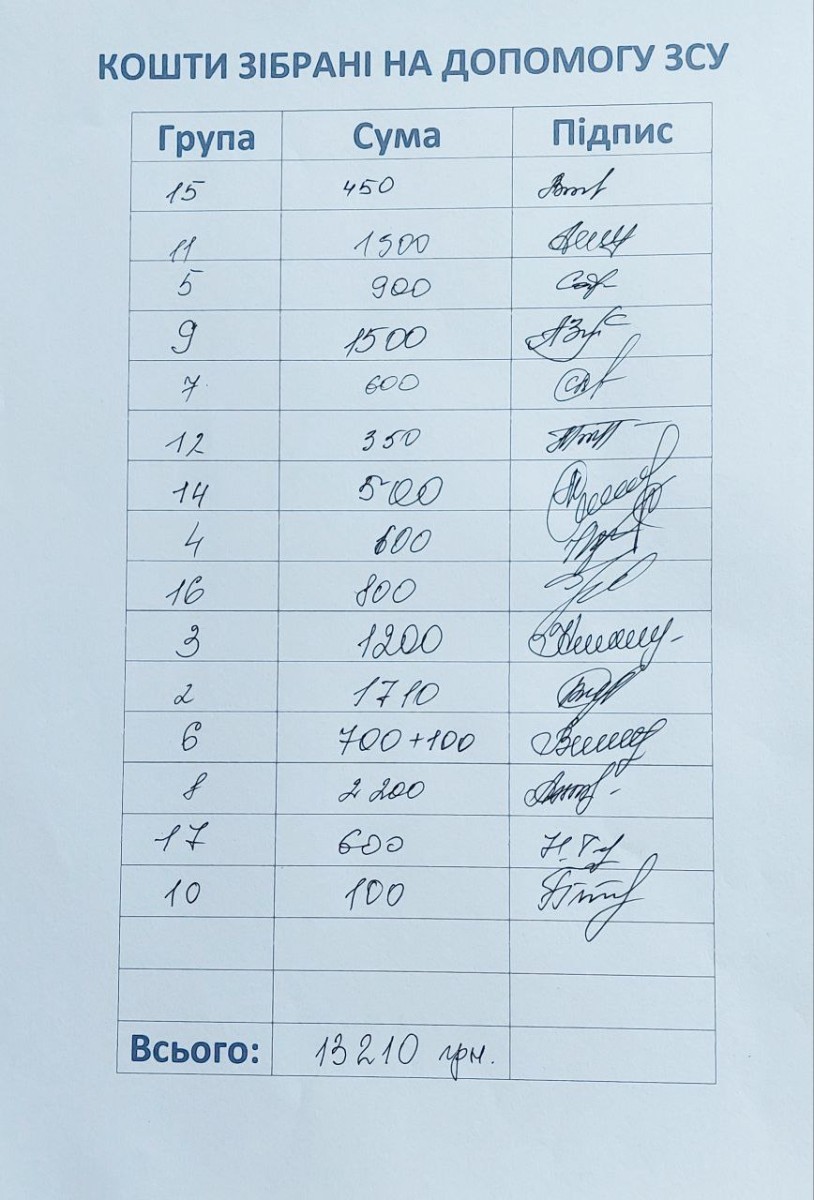 КОШТИ ЗІБРАНІ НА ДОПОМОГУ ЗСУ
Група Сума Підпис
15 450
11 1500
5 900
9 1500
7 600
12 350
14 500
4 600
16 800
3 1200
2 1710
6 700+100
8 2 200
17 600
10 100
Всього: 13210 грн.